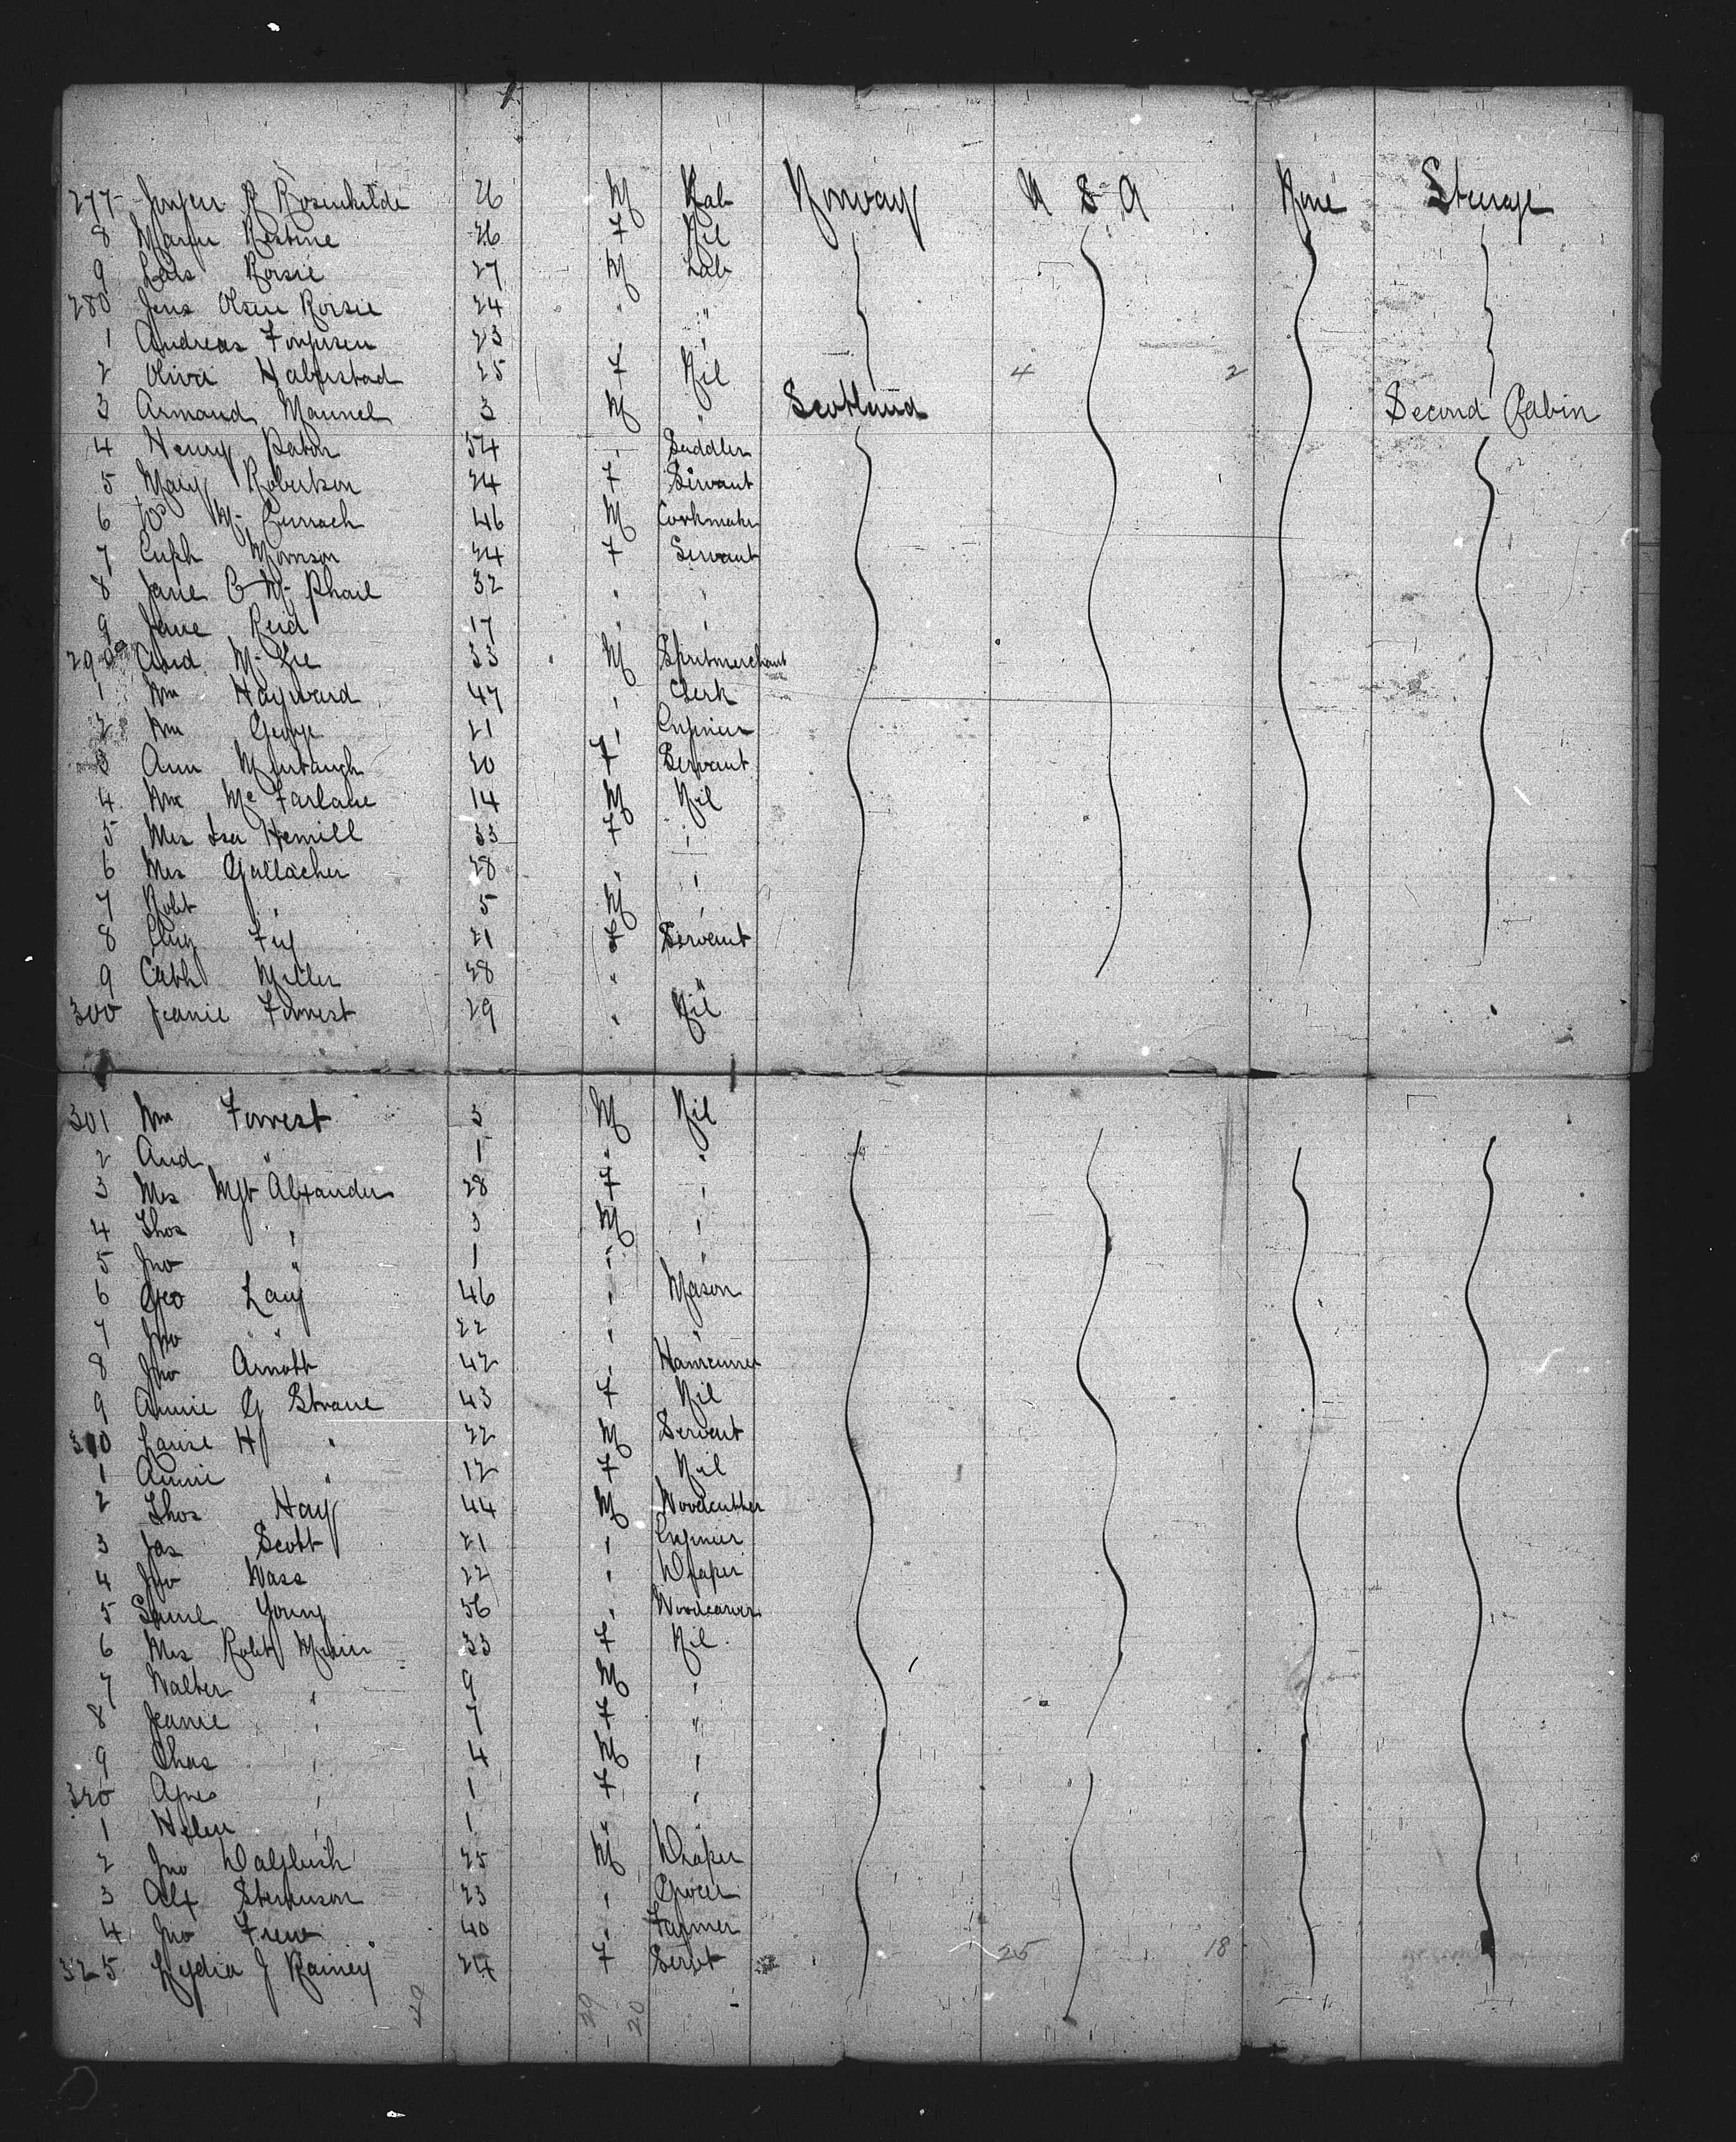 277 R Rosenkilde 26 M Lab Norway U S A None Steerage
8 Kestine 26 F Nil
9 Lars Rorsie 27 M Lab
280 Jens Olsen Rorsie 24 " "
1 Andreas 23 " "
2 Oliva 25 F Nil 4 2
3 Armand Maunel 3 M " Scotland Second Cabin
4 Henry Paton 54 " Saddler
5 Mary Robertson 24 F Servant
6 Mc Currach 46 M Corkmaker
7 Euph Morrison 24 F Servant
8 Jane C Mc Phail 32 " "
9 Jane Reid 17 " "
290 And Mc Gee 33 M Spiritmerchant
1 Wm Hayward 47 " Clerk
2 Wm George 21 " Engineer
3 Ann Murtaugh 20 F Servant
4 Wm Mc Farlane 14 M Nil
5 Mrs Isa Hemill 33 F "
6 Mrs Gallacher 28 " "
7 Robt " 5 M "
8 21 F Servant
9 Cath Miller 28 " "
300 Jeanie Forrest 29 " Nil
301 Wm Forrest 3 M Nil
2 And " 1 " "
3 Mrs Mgt Alexander 28 F "
4 Thos " 3 M "
5 Jno " 1 " "
6 Geo Lang 46 " Mason
7 Jno " 22 " "
8 Jno Arnott 42 "
9 Annie G Strane 43 F Nil
310 H " 22 M Servant
1 Annie " 12 F Nil
2 Thos Hay 44 M Woodcutter
3 Jas Scott 21 " Engineer
4 Jno Wass 22 " Draper
5 Saml Young 56 " Woodcarver
6 Mrs Robt 33 F Nil
7 Walter " 9 M "
8 Jeanie " 7 F "
9 Chas " 4 M "
320 Agnes " 1 F "
1 Helen " 1 " "
2 Jno Dalgliesh 25 M Draper
3 Alex Stevenson 23 " Grocer
4 Jno Frew 40 " Farmer
325 Lydia J Rainey 24 F Servt 25 18
29 29 20